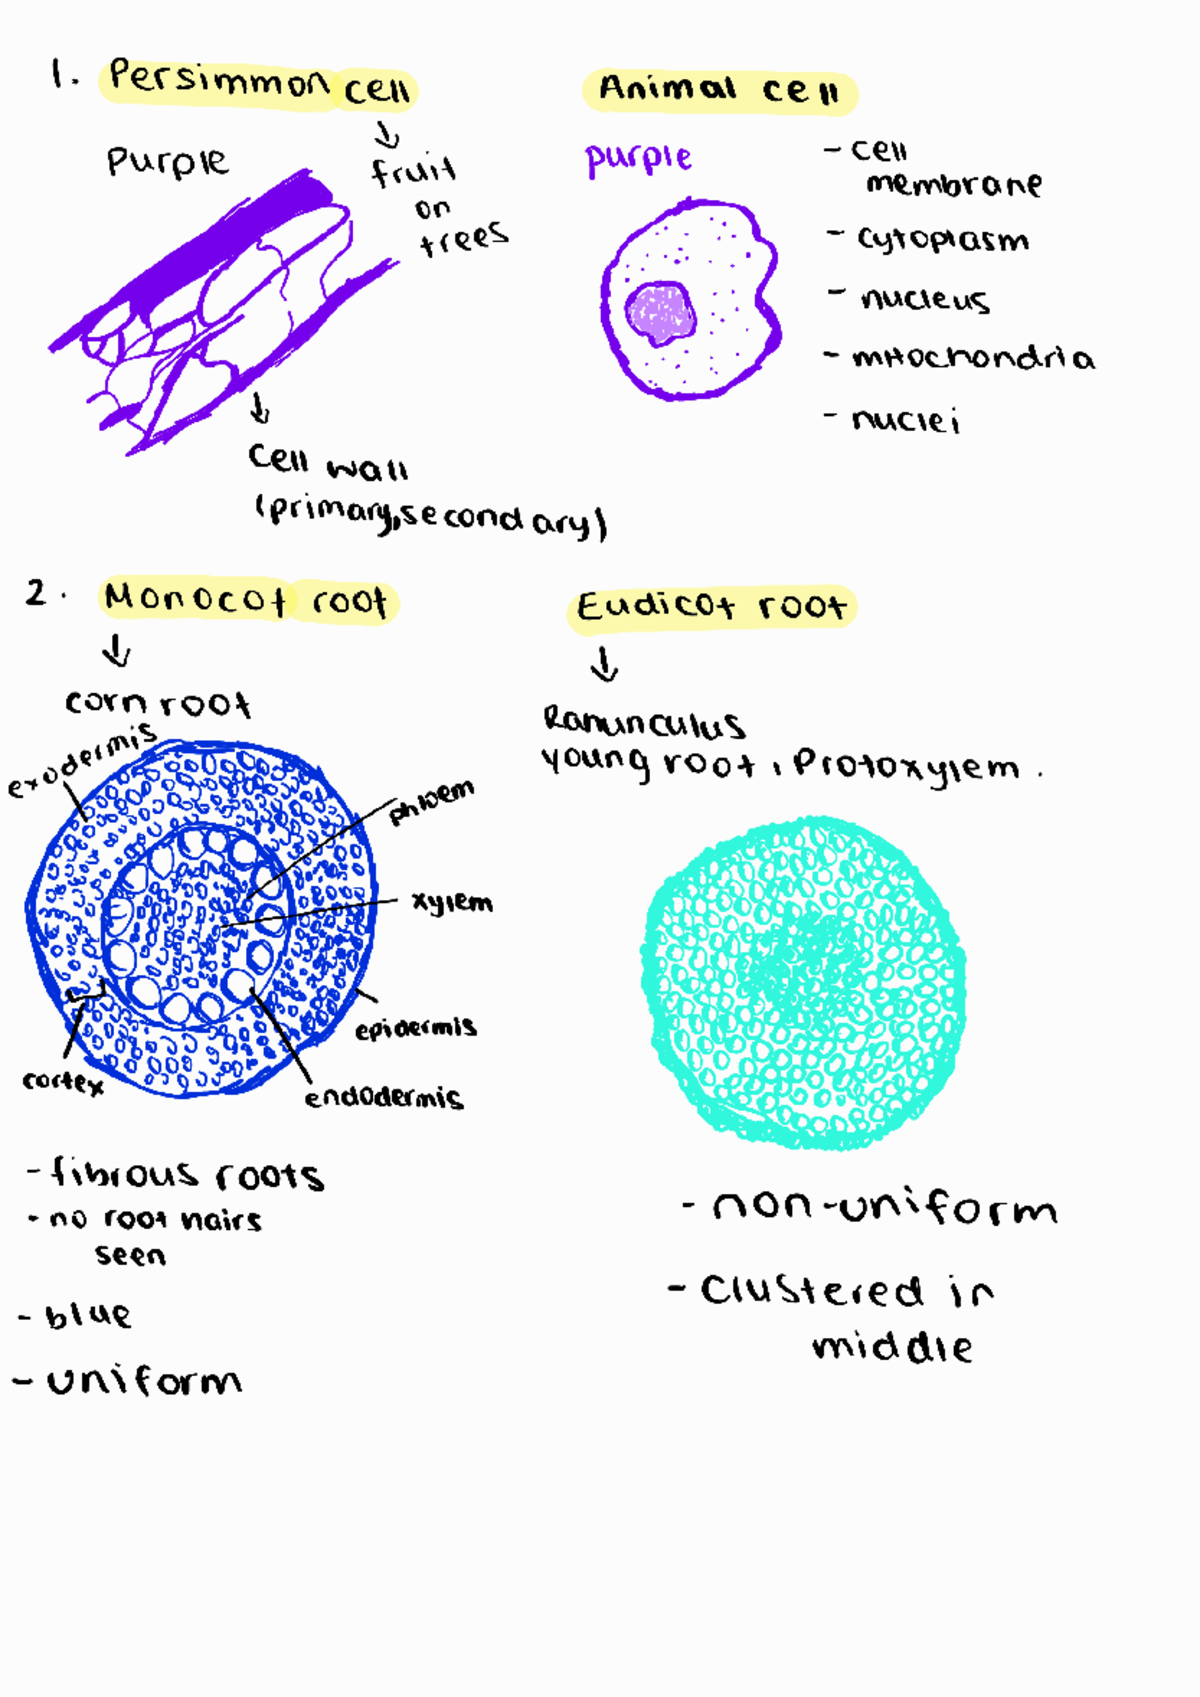 1. Persimmon cell
Purple
fruit
on
trees
cell wall
(primary, secondary)
Animal cell
purple
- cell
membrane
- cytoplasm
- nucleus
- mitochondria
- nuclei
2. Monocot root
corn root
exodermis
phloem
xylem
epidermis
endodermis
cortex
- fibrous roots
- no root hairs
seen
- blue
- uniform
Eudicot root
Ranunculus
young root, Protoxylem.
- non-uniform
- clustered in
middle